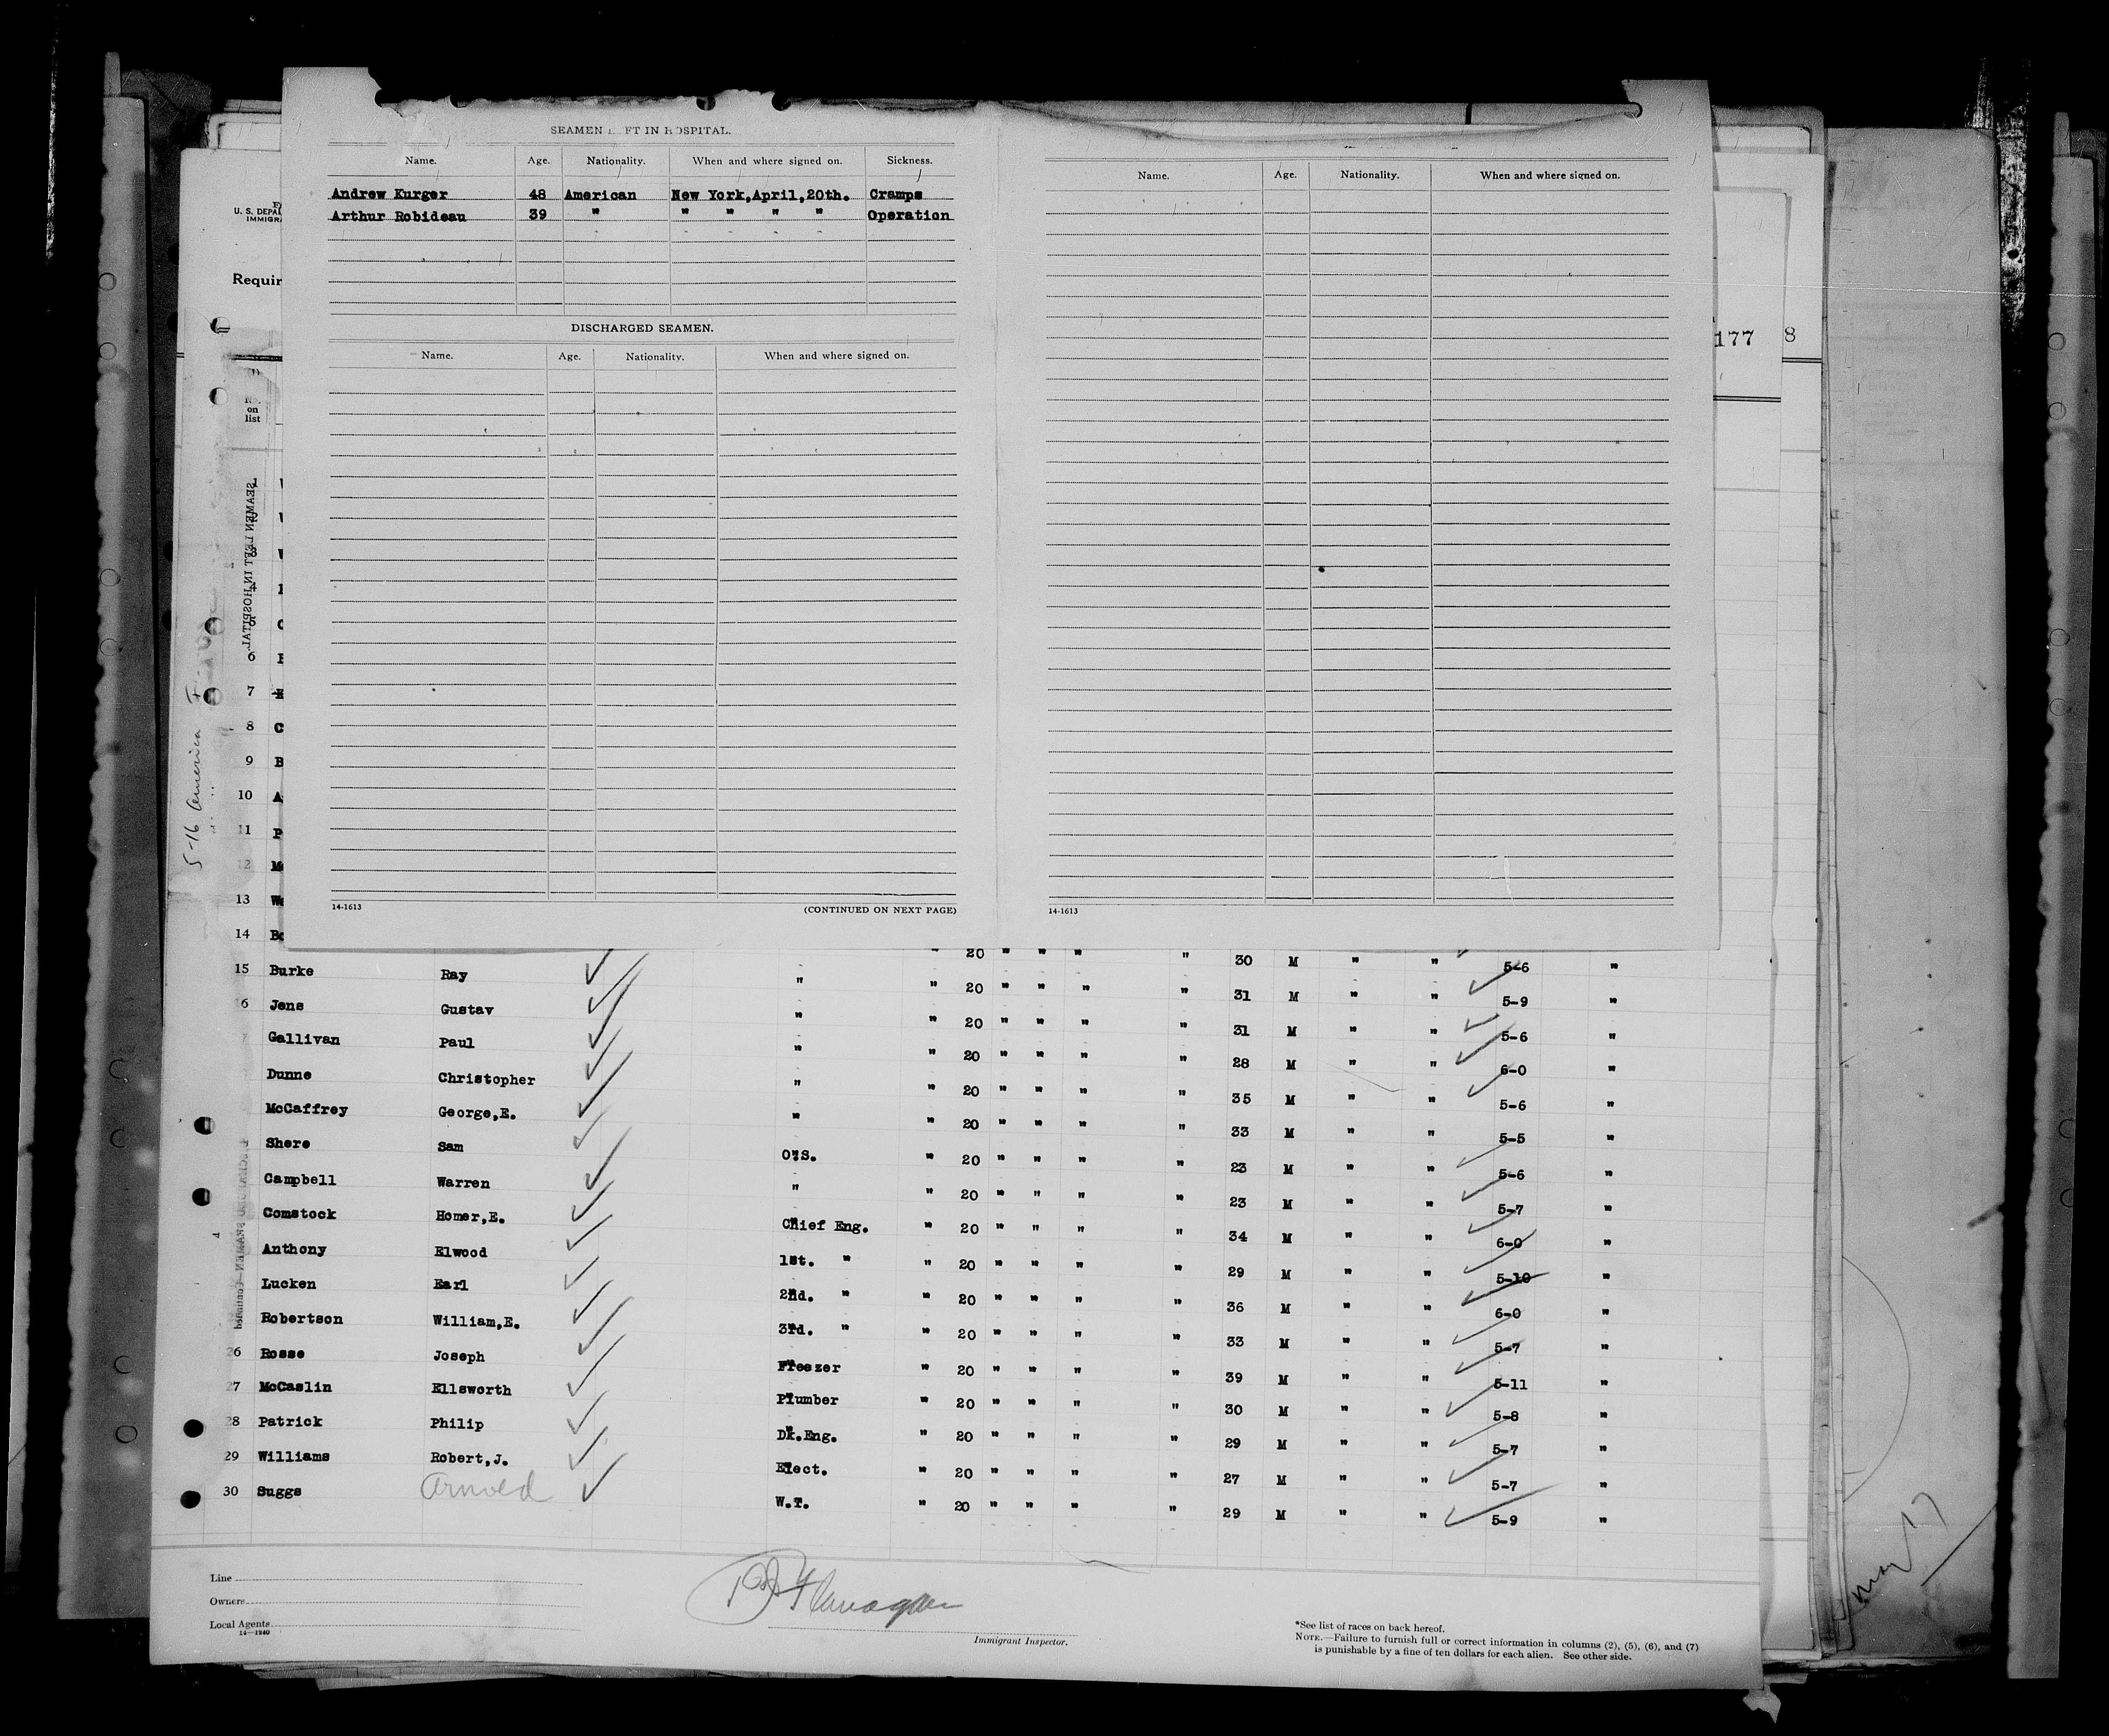 SEAMEN L FT IN HOSPITAL.
Name. Age. Nationality. When and where signed on. Sickness.
Andrew Kurger 48 American New York,April,20th. Cramps
Arthur Robideau 39 " " " " " Operation
DISCHARGED SEAMEN.
Name. Age. Nationality. When and where signed on.
14-1613 (CONTINUED ON NEXT PAGE)
Name. Age. Nationality. When and where signed on.
14-1613
U. S. DEPA
IMMIGR
Requir
177 8
No. on list
SEAMEN LEFT IN HOSPITAL.
5-16 America
1
3
4
5
6
7
8 C
9 B
10 A
11 P
12 M
13 We
14 Bo " 20 " " " " 30 M " " 5-6 "
15 Burke Ray " " 20 " " " " 31 M " " 5-9 "
6 Jens Gustav " " 20 " " " " 31 M " " 5-6 "
Gallivan Paul " " 20 " " " " 28 M " " 6-0 "
Dunne Christopher " " 20 " " " " 35 M " " 5-6 "
McCaffrey George,E. " " 20 " " " " 33 M " " 5-5 "
Shere Sam O.S. " 20 " " " " 23 M " " 5-6 "
Campbell Warren " " 20 " " " " 23 M " " 5-7 "
Comstock Homer,E. Chief Eng. " 20 " " " " 34 M " " 6-0 "
Anthony Elwood 1st. " " 20 " " " " 29 M " " 5-10 "
Lucken Earl 2nd. " " 20 " " " " 36 M " " 6-0 "
Robertson William,E. 3rd. " " 20 " " " " 33 M " " 5-7 "
26 Rosse Joseph Freezer " 20 " " " " 39 M " " 5-11 "
27 McCaslin Ellsworth Plumber " 20 " " " " 30 M " " 5-8 "
28 Patrick Philip Dk.Eng. " 20 " " " " 29 M " " 5-7 "
29 Williams Robert,J. Elect. " 20 " " " " 27 M " " 5-7 "
30 Suggs Arnold W.T. " 20 " " " " 29 M " " 5-9 "
Line
Owners
Local Agents
14-1240
Flanagan
Immigrant Inspector.
*See list of races on back hereof.
NOTE.—Failure to furnish full or correct information in columns (2), (5), (6), and (7)
is punishable by a fine of ten dollars for each alien. See other side.
May 17